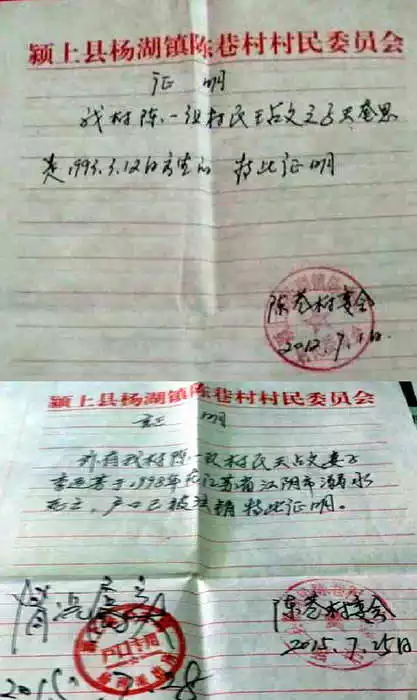 颍上县杨湖镇陈巷村村民委员会
证 明
我村陈一组村民王占文之子王奎恩
是1995.3.12日出生的 特此证明
陈巷村委会
2012.7.
颍上县杨湖镇陈巷村村民委员会
证 明
兹有我村陈一组村民王占文妻子
李 于1998年在江苏省江阴市溺水
死亡,户口已被注销 特此证明。
情况属实
户口专用
陈巷村委会
2015.7.25日
2015.7.28